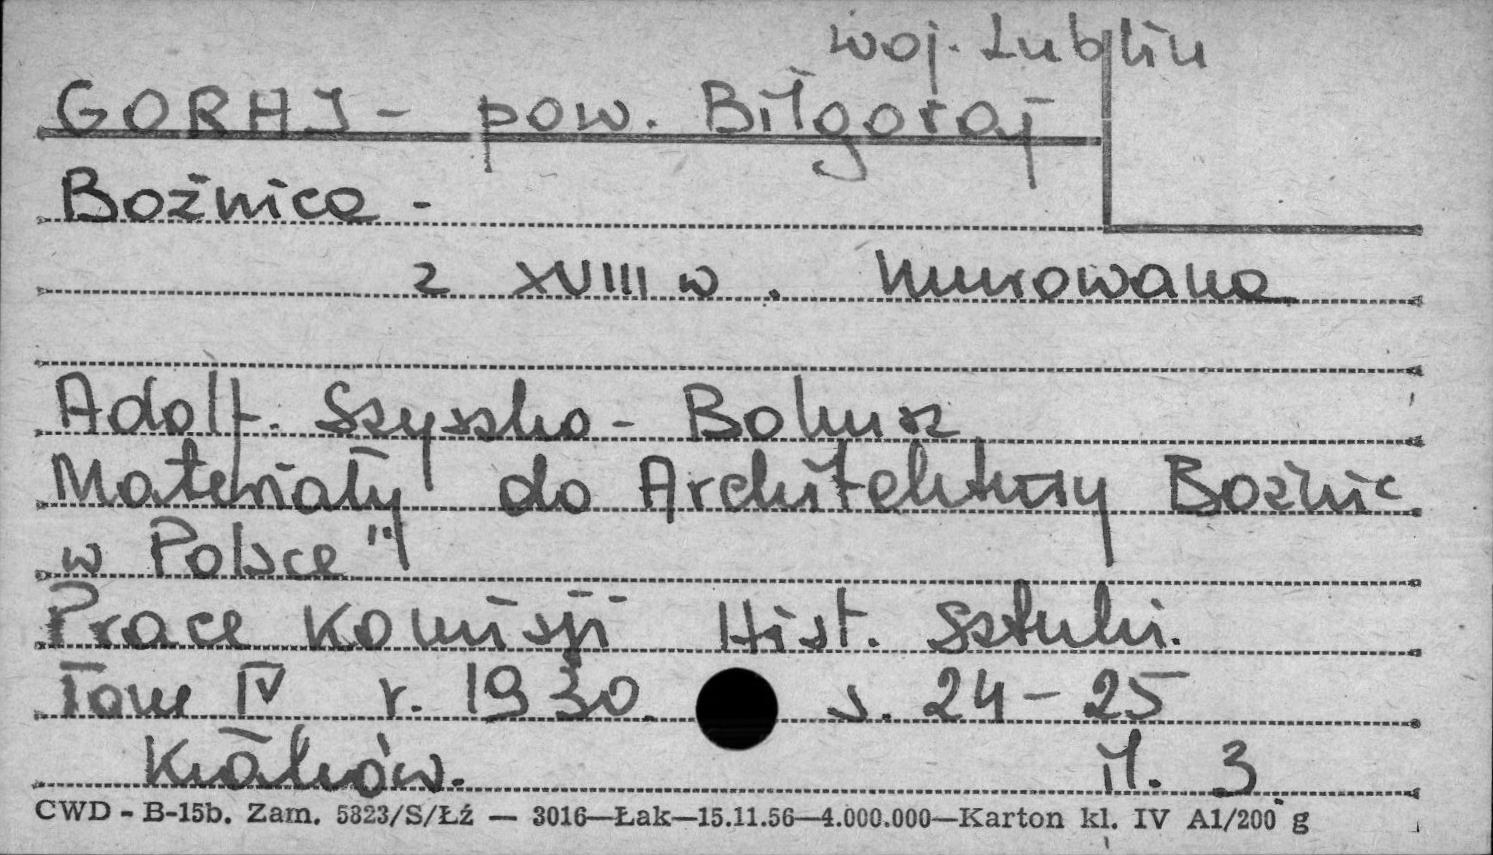 woj. Lublin
GORAJ - pow. Biłgoraj
Bożnica -
z XVIII w. murowana
Adolf. Szyszko - Bohusz
Materiały do Architektury Bożnic
w Polsce"
Prace Komisji Hist. Sztuki.
Tom IV r. 1930. s. 24-25
Kraków. il. 3
CWD - B-15b. Zam. 5823/S/Łź — 3016—Łak—15.11.56—4.000.000—Karton kl. IV A1/200 g